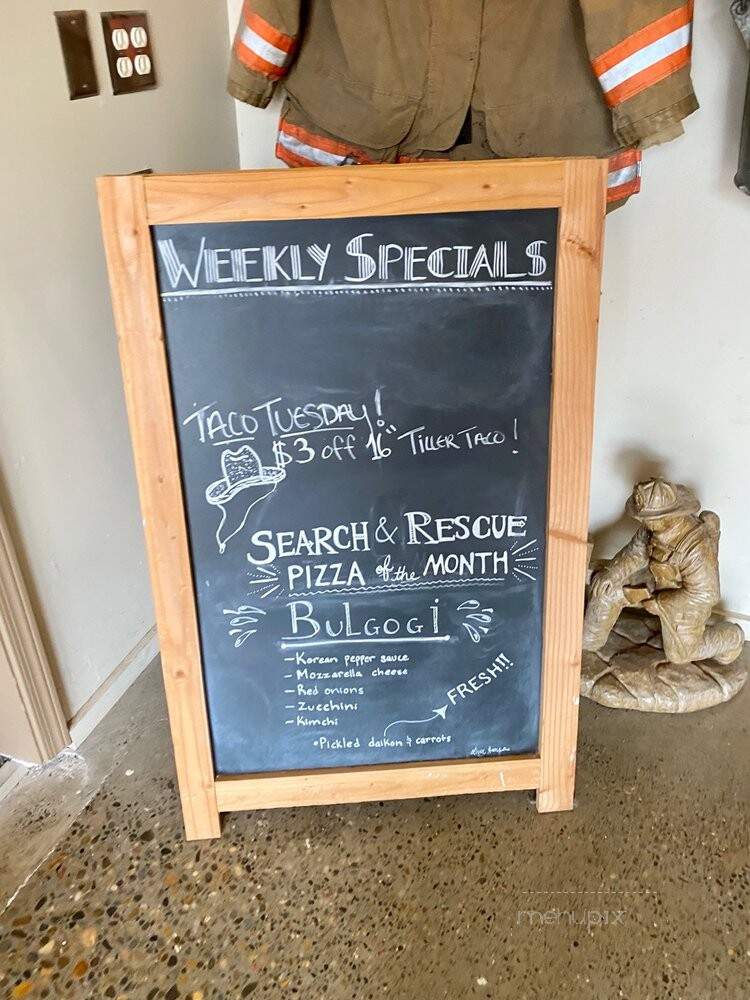 WEEKLY SPECIALS
TACO TUESDAY!
$3 off 16" TILLER TACO!
SEARCH & RESCUE
PIZZA of the MONTH
BULGOGI
- Korean pepper sauce
- Mozzarella cheese
- Red onions
- Zucchini
- Kimchi
FRESH!!
*Pickled daikon & carrots
menupix